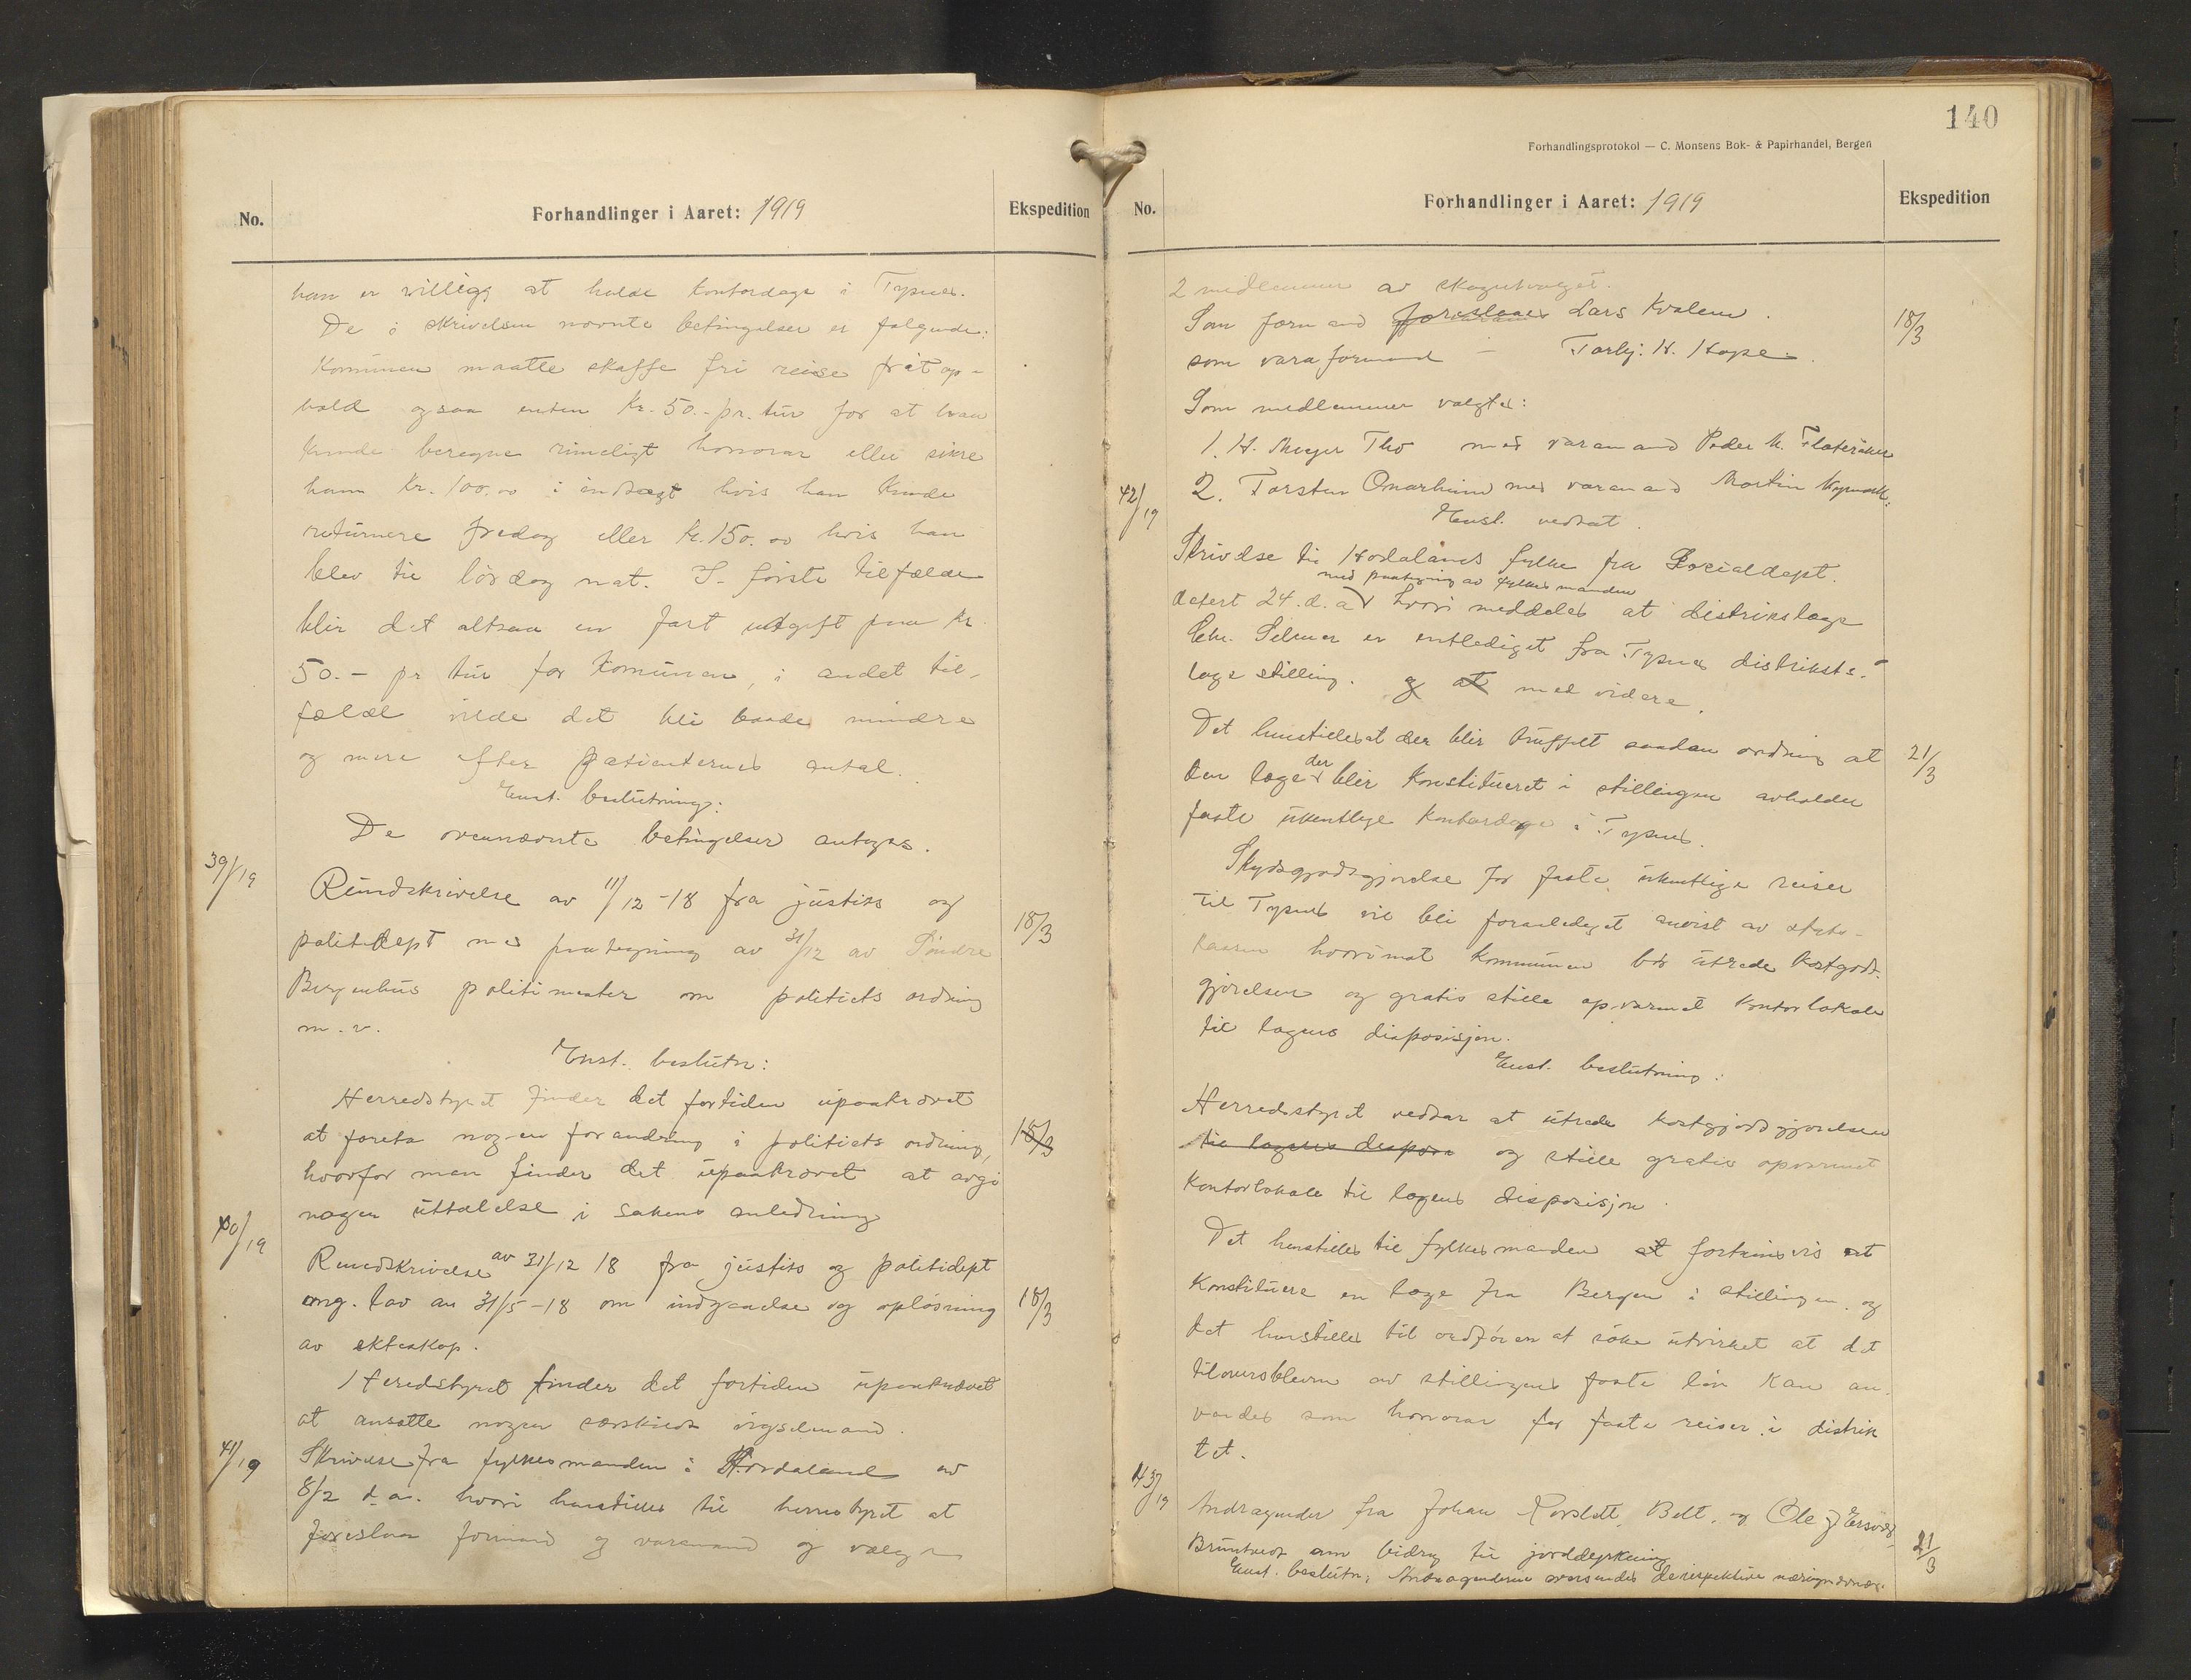 No.
Forhandlinger i Aaret: 1919
Ekspedition
han er villig at holde kontordage i Tysnes.
De i skrivelsen nævnte betingelser er følgende:
Kommunen maatte skaffe fri reise frit op-
hold ogsaa enten Kr. 50.- pr. tur for at han
kunde beregne rimeligt honorar eller sikre
ham Kr. 100.00 i indtægt hvis han kunde
returnere fredag eller kr. 150.00 hvis han
blev til lördag nat. I förste tilfælde
blir det altsaa en fast utgift paa kr.
50.- pr tur for komunen, i andet til-
fælde vilde det bli baade mindre
og mere efter patienternes antal.
Enst. beslutning:
De ovennævnte betingelser antages.
39/19
Rundskrivelse av 11/12-18 fra justits og
politidept med paategning av 31/12 av Söndre
Bergenhus politimester om politiets ordning
m.v.
18/3
Enst. beslutn:
Herredstyret finder det fortiden upaakrævet
at foreta nogen forandring i politiets ordning,
hvorfor man finder det upaakrævet at avgi
nogen uttalelse i sakens anledning
18/3
40/19
Rundskrivelse av 31/12 18 fra justits og politidept
ang. lov av 31/5-18 om indgaaelse og oplösning
av ekteskap.
18/3
Heredstyret finder det fortiden upaakrævet
at ansætte nogen særskilt vigselmand.
41/19
Skrivelse fra fylkesmanden i Hordaland av
8/2 d.a. hvori henstilles til herredstyret at
foreslaa formand og varamand og vælge
140
Forhandlingsprotokol — C. Monsens Bok- & Papirhandel, Bergen
No.
Forhandlinger i Aaret: 1919
Ekspedition
2 medlemmer av skogutvalget.
Som formand foreslaaes Lars Kvalem.
18/3
som varaformand — Torbj. H. Hope.
Som medlemmer valgtes:
1. H. Meyer Tho med varamand Peder M. Flateråker
2. Torsten Onarheim med varamand Martin
Enst. vedtat.
42/19
Skrivelse til Hordalands fylke fra Socialdept.
med paategning av fylkesmanden
datert 24. d.a. hvori meddeles at distriktslæge
Chr. Selmer er entlediget fra Tysnes distrikts-
læge stilling. og at med videre.
Det henstilles at der blir truffet saadan ordning at
21/3
den læge der blir konstitueret i stillingen avholder
faste ukentlige kontordage i Tysnes.
Skydsgodtgjörelse for faste ukentlige reiser
til Tysnes vil bli foranlediget anvist av stats-
kassen hvorimot kommunen bör utrede kostgodt-
gjörelsen og gratis stille opvarmet kontorlokale
til lægens disposisjon.
Enst. beslutning:
Herredstyret vedtar at utrede kostgodtgjörelsen
til lægens dispos og stille gratis opvarmet
kontorlokale til lægens disposisjon.
Det henstilles til fylkesmanden at fortrinsvis at
konstituere en læge fra Bergen i stillingen og
det henstilles til ordfören at söke utvirket at det
tiloversblevne av stillingens faste lön kan an-
vendes som honorar for faste reiser i distrik
tet.
43/19
Andragender fra Johan Korslett, Belt. og Ole J Ersvær,
Bruntveit om bidrag til jorddyrkning
21/3
Enst. beslutn: Andragenderne oversendes de respektive næringsnævn.